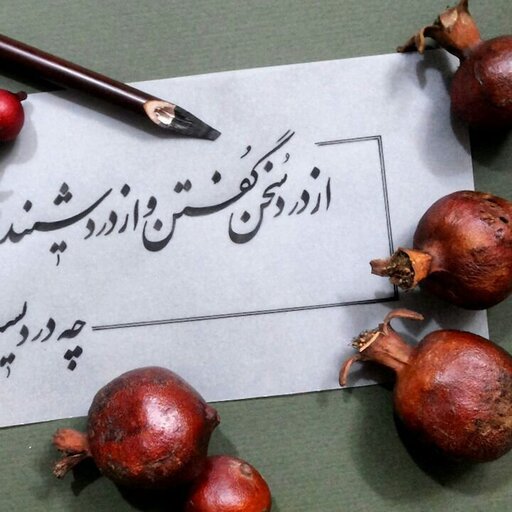 از درد سُخن گُفتن و از درد شنید
چه دردیس